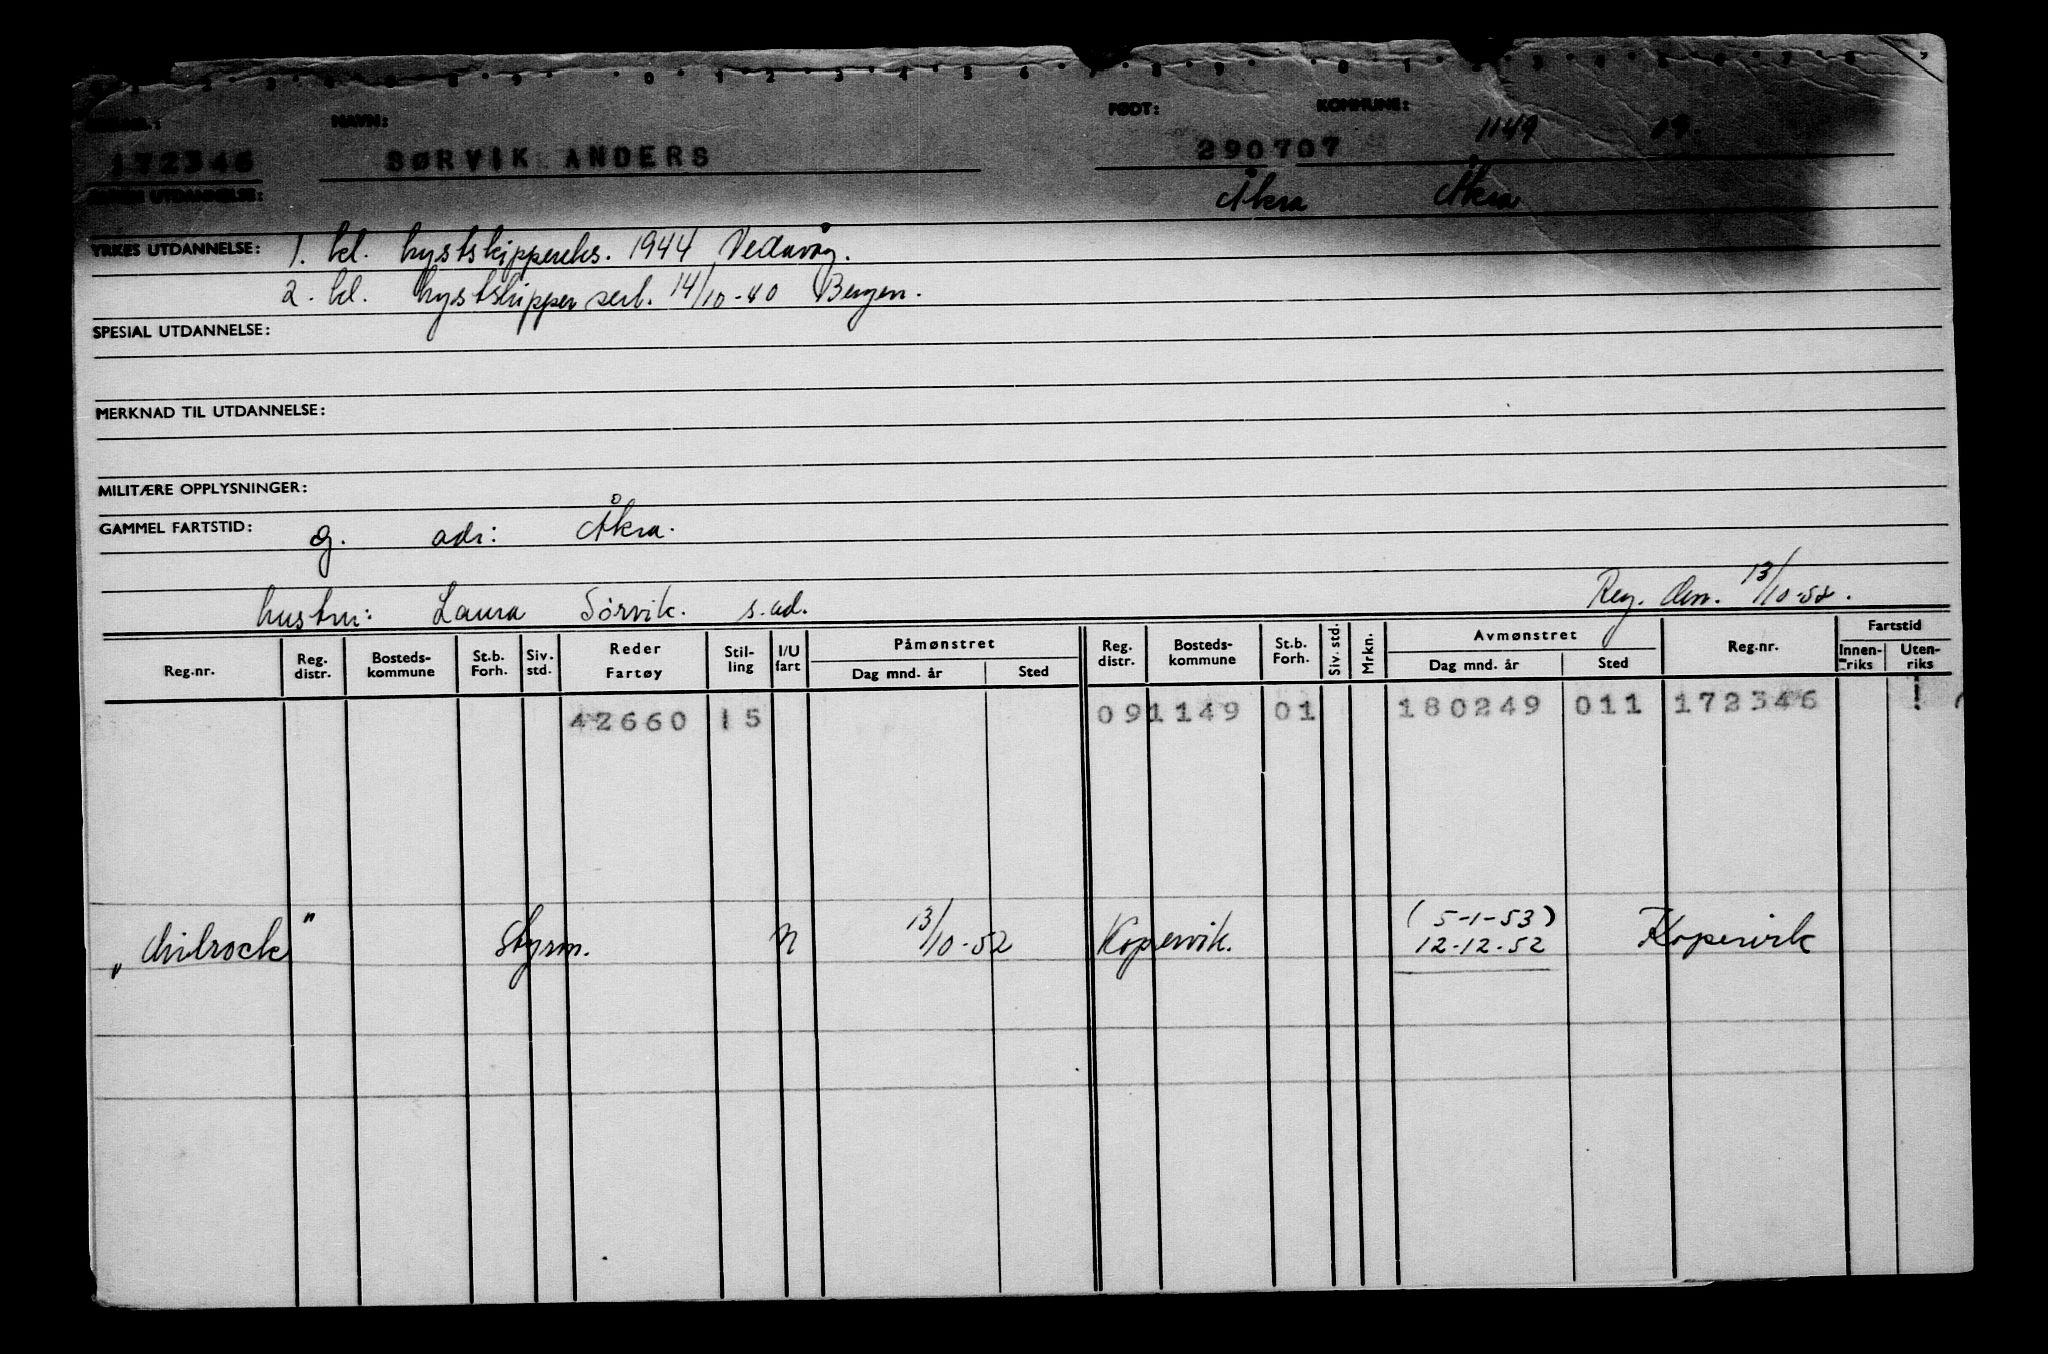 NAVN: FØDT: KOMMUNE:
1149 09.
172346 SØRVIK ANDERS 290707
Åkra Åkra
YRKES UTDANNELSE: 1. kl. kystskippereks. 1944 Vedavåg.
2. kl. kystskipper sert. 14/10-40 Bergen.
SPESIAL UTDANNELSE:
MERKNAD TIL UTDANNELSE:
MILITÆRE OPPLYSNINGER:
GAMMEL FARTSTID: g. adr: Åkra.
hustru: Laura Sørvik. s. ad. Reg. 13/10-52.
Reg.nr. Reg. distr. Bosteds-kommune St.b. Forh. Siv. std. Reder Fartøy Stil-ling I/U fart Påmønstret Dag mnd. år Sted Reg. distr. Bosteds-kommune St.b. Forh. Siv. std. Mrkn. Avmønstret Dag mnd. år Sted Reg.nr. Fartstid Innen-riks Uten-riks
42660 15 091149 01 180249 011 172346
(5-1-53)
Styrm. N 13/10-52 Kopervik. 12-12-52 Kopervik